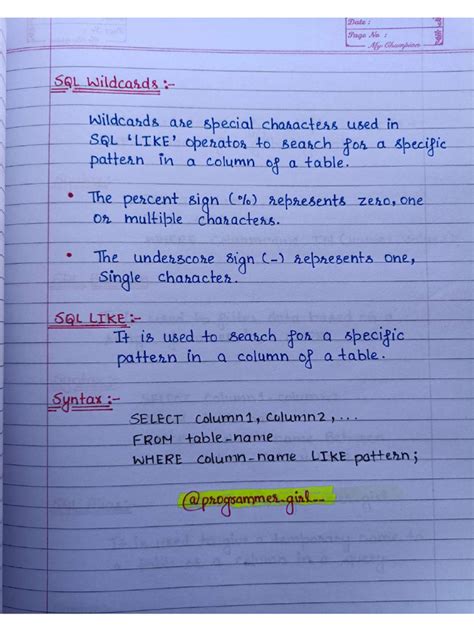 Date :
Page No :
My Champion
SQL Wildcards :-
Wildcards are special characters used in
SQL 'LIKE' operator to search for a specific
pattern in a column of a table.
• The percent sign (%) represents zero, one
or multiple characters.
• The underscore sign (_) represents one,
Single character.
SQL LIKE :-
It is used to search for a specific
pattern in a column of a table.
Syntax :-
SELECT column1, column2, ...
FROM table_name
WHERE column_name LIKE pattern;
@programmer_girl__